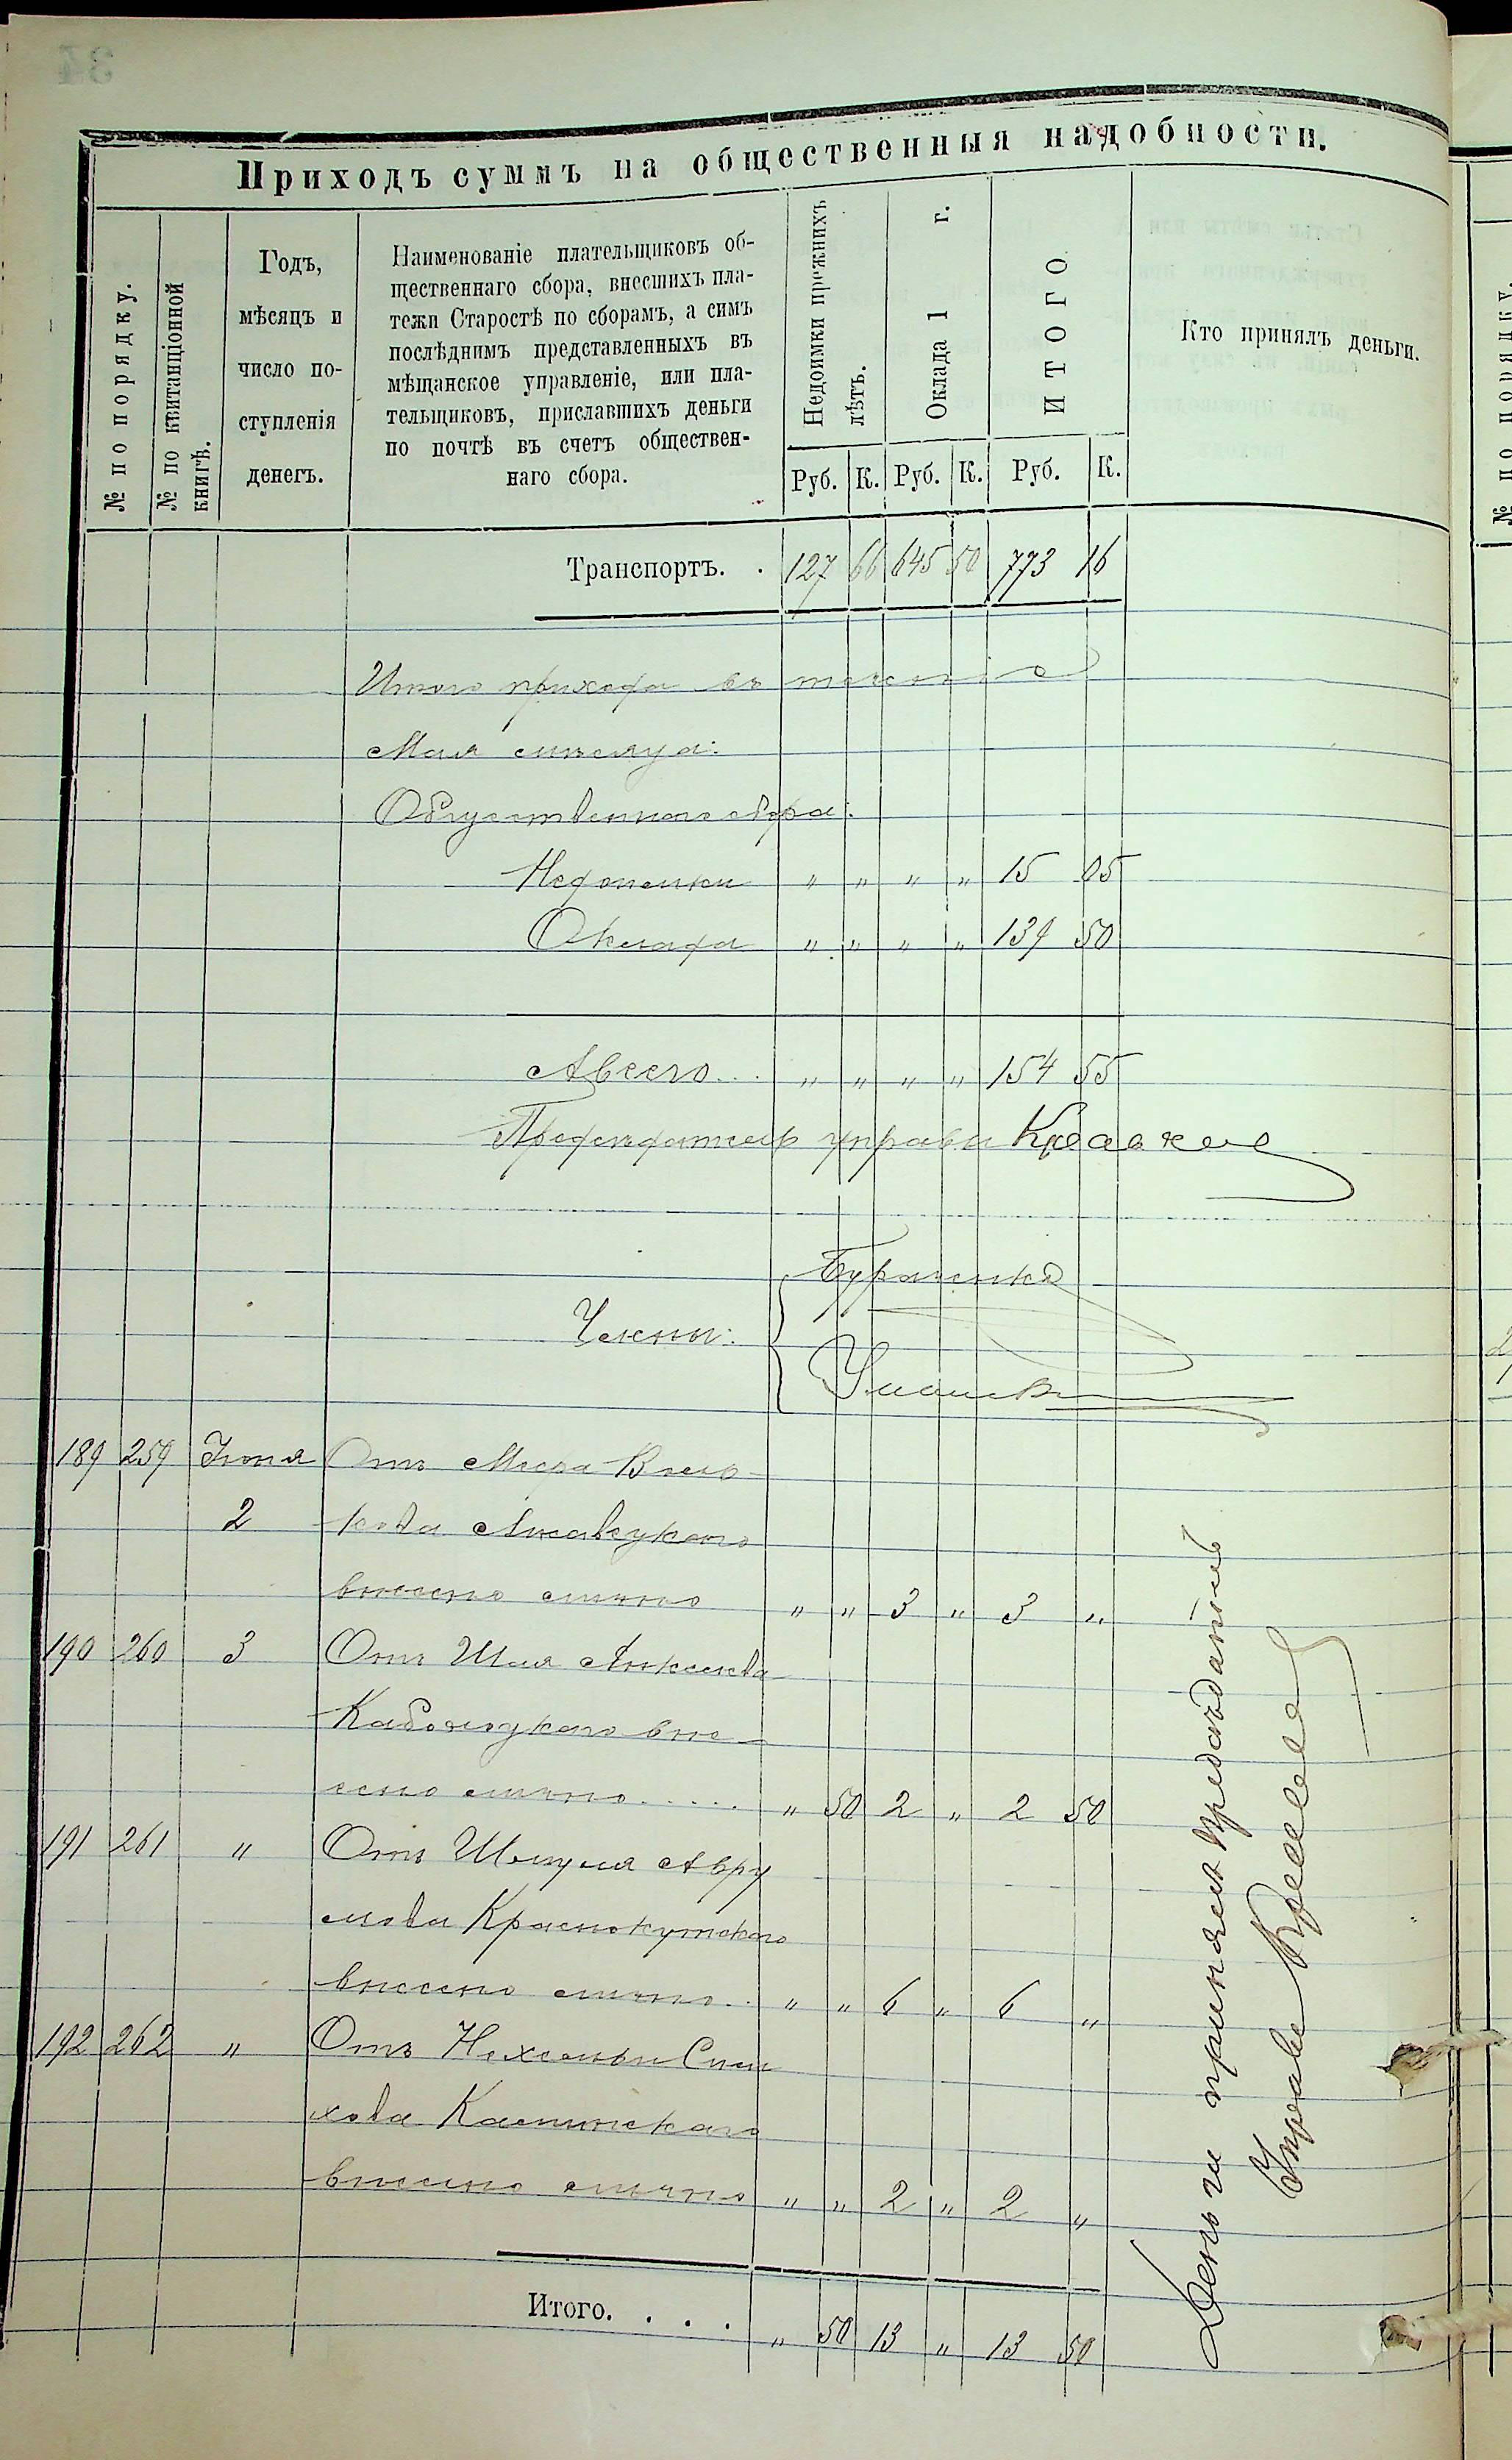 34
Приходъ суммъ на общественныя надобности.
№ по порядку.
№ по квитанціонной
книгѣ.
Годъ,
мѣсяцъ и
число по-
ступленія
денегъ.
Наименованіе плательщиковъ об-
щественнаго сбора, внесшихъ пла-
тежи Старостѣ по сборамъ, а симъ
послѣднимъ представленныхъ въ
мѣщанское управленіе, или пла-
тельщиковъ, приславшихъ деньги
по почтѣ въ счетъ обществен-
наго сбора.
Недоимки прежнихъ
лѣтъ.
Оклада 1 г.
ИТОГО
Кто принялъ деньги.
Руб. К. Руб. К. Руб. К.
Транспортъ. . 127 66 645 50 773 16
Итого прихода въ теченіе
Мая мѣсяца:
Общественнаго сбора:
Недоимки " " " " 15 05
Оклада " " " " 139 50
А всего... " " " " 154 55
Предсѣдатель управы
Члены:
189 259 Іюня Отъ
2
внесено лично " " 3 " 3 "
190 260 3 Отъ
вне-
сено лично..... " 50 2 " 2 50
191 261 " Отъ Шмуля Авру
мова Краснокутскаго
внесено лично.. " " 6 " 6 "
192 262 " Отъ
хова
внесено лично " " 2 " 2 "
Итого. . . . " 50 13 " 13 50
Деньги принялъ Предсѣдатель
Управы
№ по порядку.